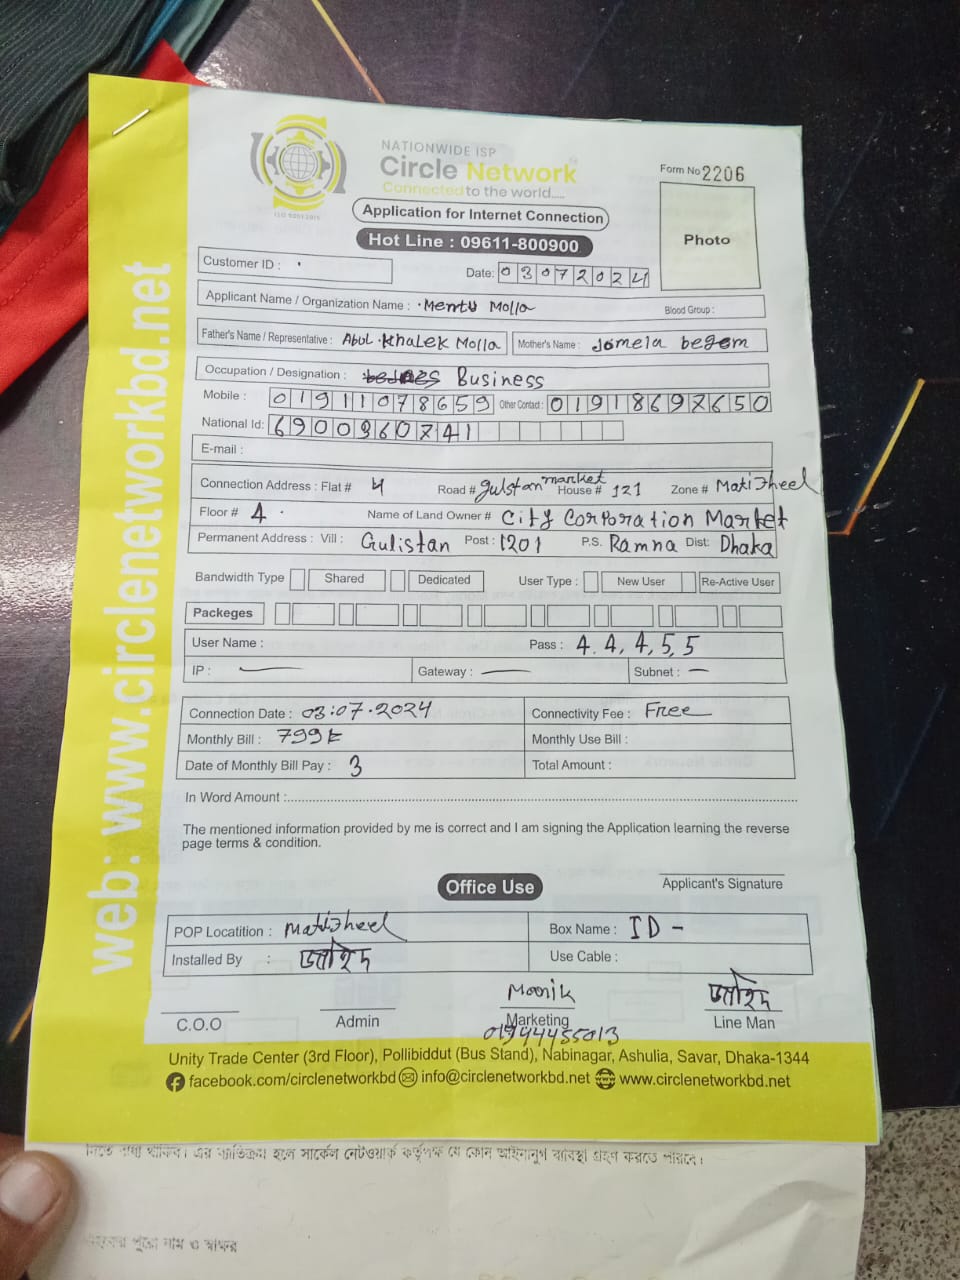 NATIONWIDE ISP
Circle Network
Connected to the world.....
ISO 9001:2015
Form No 2206
Application for Internet Connection
Hot Line : 09611-800900
Photo
Customer ID :
Date: 03072024
Applicant Name / Organization Name : Mentu Molla Blood Group :
Father's Name / Representative : Abul Khalek Molla Mother's Name : Jomela begem
Occupation / Designation : Business
Mobile : 01911078659 Other Contact : 01918697650
National Id: 6900360741
E-mail :
Connection Address : Flat # 4 Road # gulstan market House # 121 Zone # Matijheel
Floor # 4 Name of Land Owner # City Corporation Market
Permanent Address : Vill : Gulistan Post : 1201 P.S. Ramna Dist: Dhaka
Bandwidth Type Shared Dedicated User Type : New User Re-Active User
Packeges
User Name : Pass : 4, 4, 4, 5, 5
IP : — Gateway : — Subnet : —
Connection Date : 03.07.2024 Connectivity Fee : Free
Monthly Bill : 799৳ Monthly Use Bill :
Date of Monthly Bill Pay : 3 Total Amount :
In Word Amount :
The mentioned information provided by me is correct and I am signing the Application learning the reverse
page terms & condition.
Applicant's Signature
Office Use
POP Locatition : Matijheel Box Name : ID -
Installed By : জাহিদ Use Cable :
Monik জাহিদ
C.O.O Admin Marketing Line Man
01944455013
Unity Trade Center (3rd Floor), Pollibiddut (Bus Stand), Nabinagar, Ashulia, Savar, Dhaka-1344
facebook.com/circlenetworkbd info@circlenetworkbd.net www.circlenetworkbd.net
web: www.circlenetworkbd.net
দিতে বাধ্য থাকিব। এর ব্যতিক্রম হলে সার্কেল নেটওয়ার্ক কর্তৃপক্ষ যে কোন আইনানুগ ব্যবস্থা গ্রহণ করতে পারবে।
পুরো নাম ও স্বাক্ষর